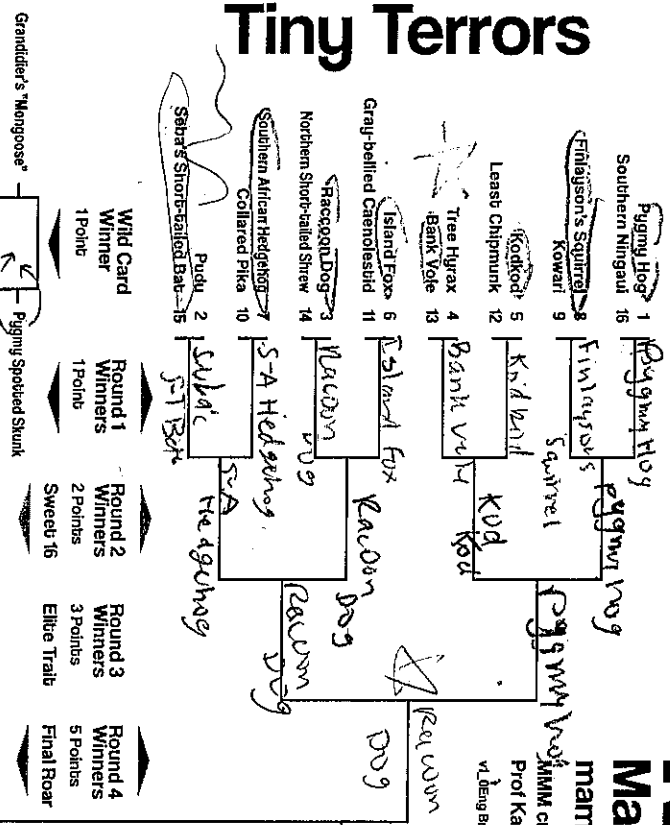 Tiny Terrors
Pygmy Hog 1
Southern Ningaui 16
Finlayson's Squirrel 8
Kowari 9
Kodkod 5
Least Chipmunk 12
Tree Hyrax 4
Bank Vole 13
Island Fox 6
Gray-bellied Caenolestid 11
Raccoon Dog 3
Northern Short-tailed Shrew 14
Southern African Hedgehog 7
Collared Pika 10
Pudu 2
Seba's Short-tailed Bat 15
Pygmy Hog
Finlaysons
Squirrel
Bank
Island Fox
Racoon
Dog
S-A Hedgehog
Pygmy Hog
Kod
Kod
Racoon
Dog
S-A
Hedgehog
Pygmy Hog
Racoon
Dog
Racoon
Dog
Grandidier's "Mongoose"
Pygmy Spotted Skunk
Wild Card
Winner
1 Point
Round 1
Winners
1 Point
Round 2
Winners
2 Points
Sweet 16
Round 3
Winners
3 Points
Elite Trait
Round 4
Winners
5 Points
Final Roar
Ma
mam
Prof Ka